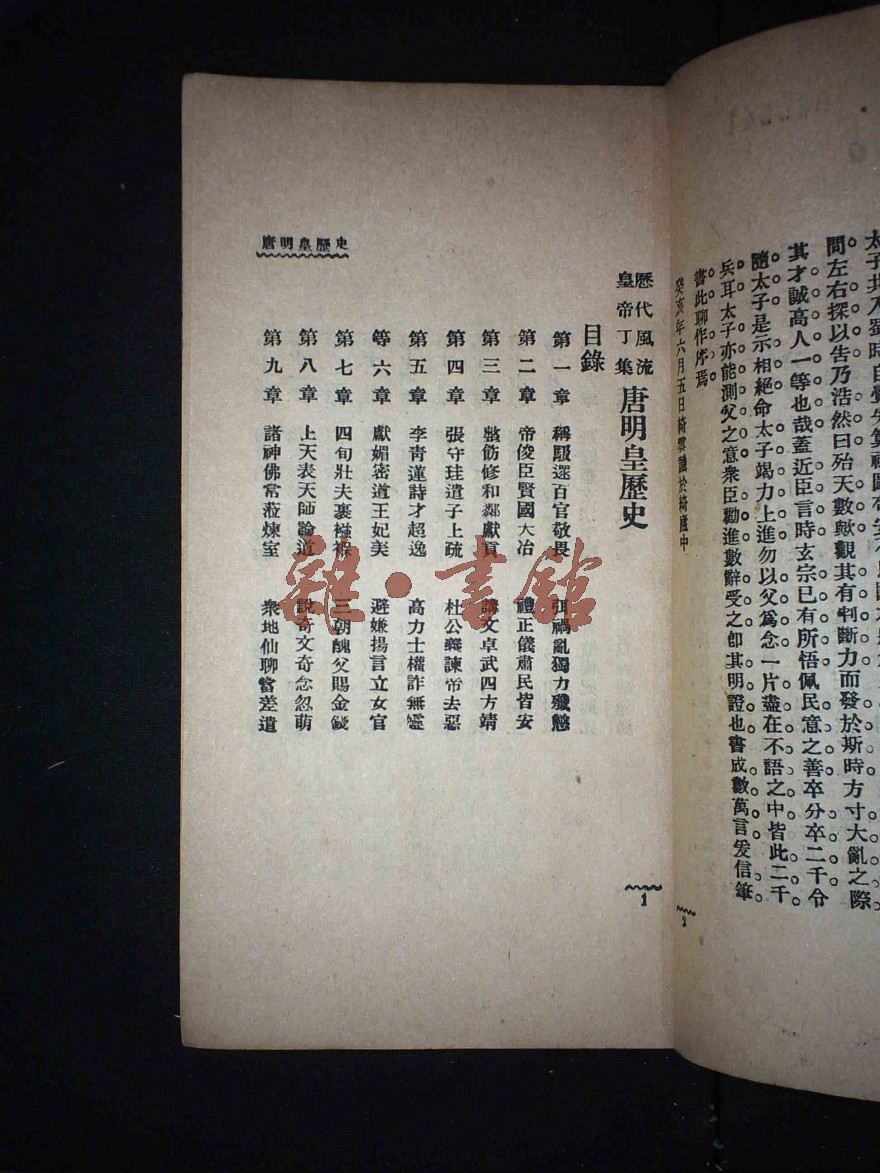 太子共入蜀時自覺失算
問左右探以告乃浩然曰殆天數歟觀其有判斷力而發於斯時方寸大亂之際
其才誠高人一等也哉蓋近臣言時玄宗已有所悟佩民意之善卒分卒二千令
隨太子是示相絕命太子竭力上進勿以父爲念一片盡在不語之中皆此二千
兵耳太子亦能測父之意衆臣勸進數辭受之卽其明證也書成數萬言爰信筆
書此聊作序焉
癸亥年六月五日綺雲識於綺廬中
2
歷代風流
皇帝丁集
唐明皇歷史
目錄
第一章 稱駁逕百官敬畏 弭禍亂獨力殲慝
第二章 帝俊臣賢國大冶 禮正儀肅民皆安
第三章 整飭修和鄰獻貢 講文卓武四方靖
第四章 張守珪遣子上疏 杜公襄諫帝去惡
第五章 李青蓮詩才超逸 高力士權詐無靈
等六章 獻媚密道王妃美 避嫌揚言立女官
第七章 四旬壯夫裹襁褓 三朝醜父賜金錢
第八章 上天表天師論道 說奇文奇念忽萌
第九章 諸神佛常蒞煉室 衆地仙聊嘗差遣
1
唐明皇歷史
雜·書館